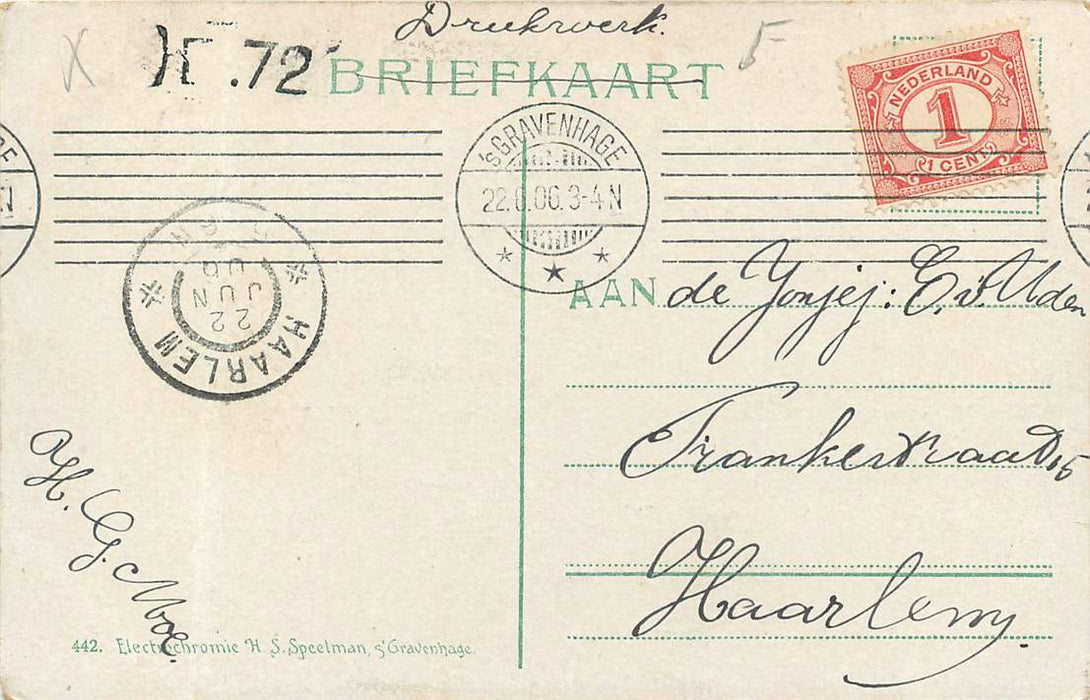 Drukwerk.
.72
BRIEFKAART
5
NEDERLAND
1
1 CENT
'sGRAVENHAGE
22.6.06. 3-4 N
HAARLEM
22
JUN
06
AAN de Jonjej: E. v. Uden
Frankestraat 15
Haarlem
H. G.
442. Electrochromie H. S. Speelman, s'Gravenhage.